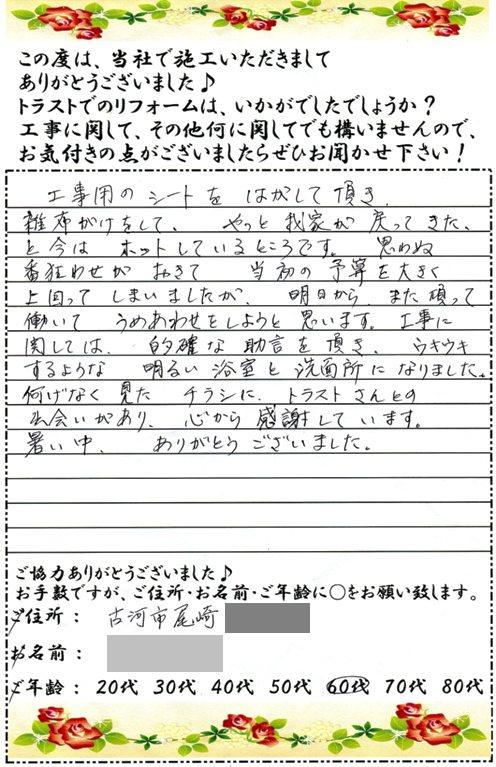 この度は、当社で施工いただきまして
ありがとうございました♪
トラストでのリフォームは、いかがでしたでしょうか？
工事に関して、その他何に関してでも構いませんので、
お気付きの点がございましたらぜひお聞かせ下さい！
工事用のシートを はがして頂き、
雑布がけをして、 やっと我家が戻ってきた、
と今は ホットしているところです。 思わぬ
番狂わせが おきて 当初の予算を大きく
上回って しまいましたが、 明日から、また頑って
働いて うめあわせをしようと思います。工事に
関しては、 的確な助言を頂き、 ウキウキ
するような 明るい浴室と洗面所になりました。
何げなく見た チラシに、トラストさんとの
出会いがあり、心から感謝しています。
暑い中、 ありがとうございました。
ご協力ありがとうございました♪
お手数ですが、ご住所・お名前・ご年齢に○をお願い致します。
ご住所： 古河市尾崎
お名前：
ご年齢： 20代 30代 40代 50代 60代 70代 80代